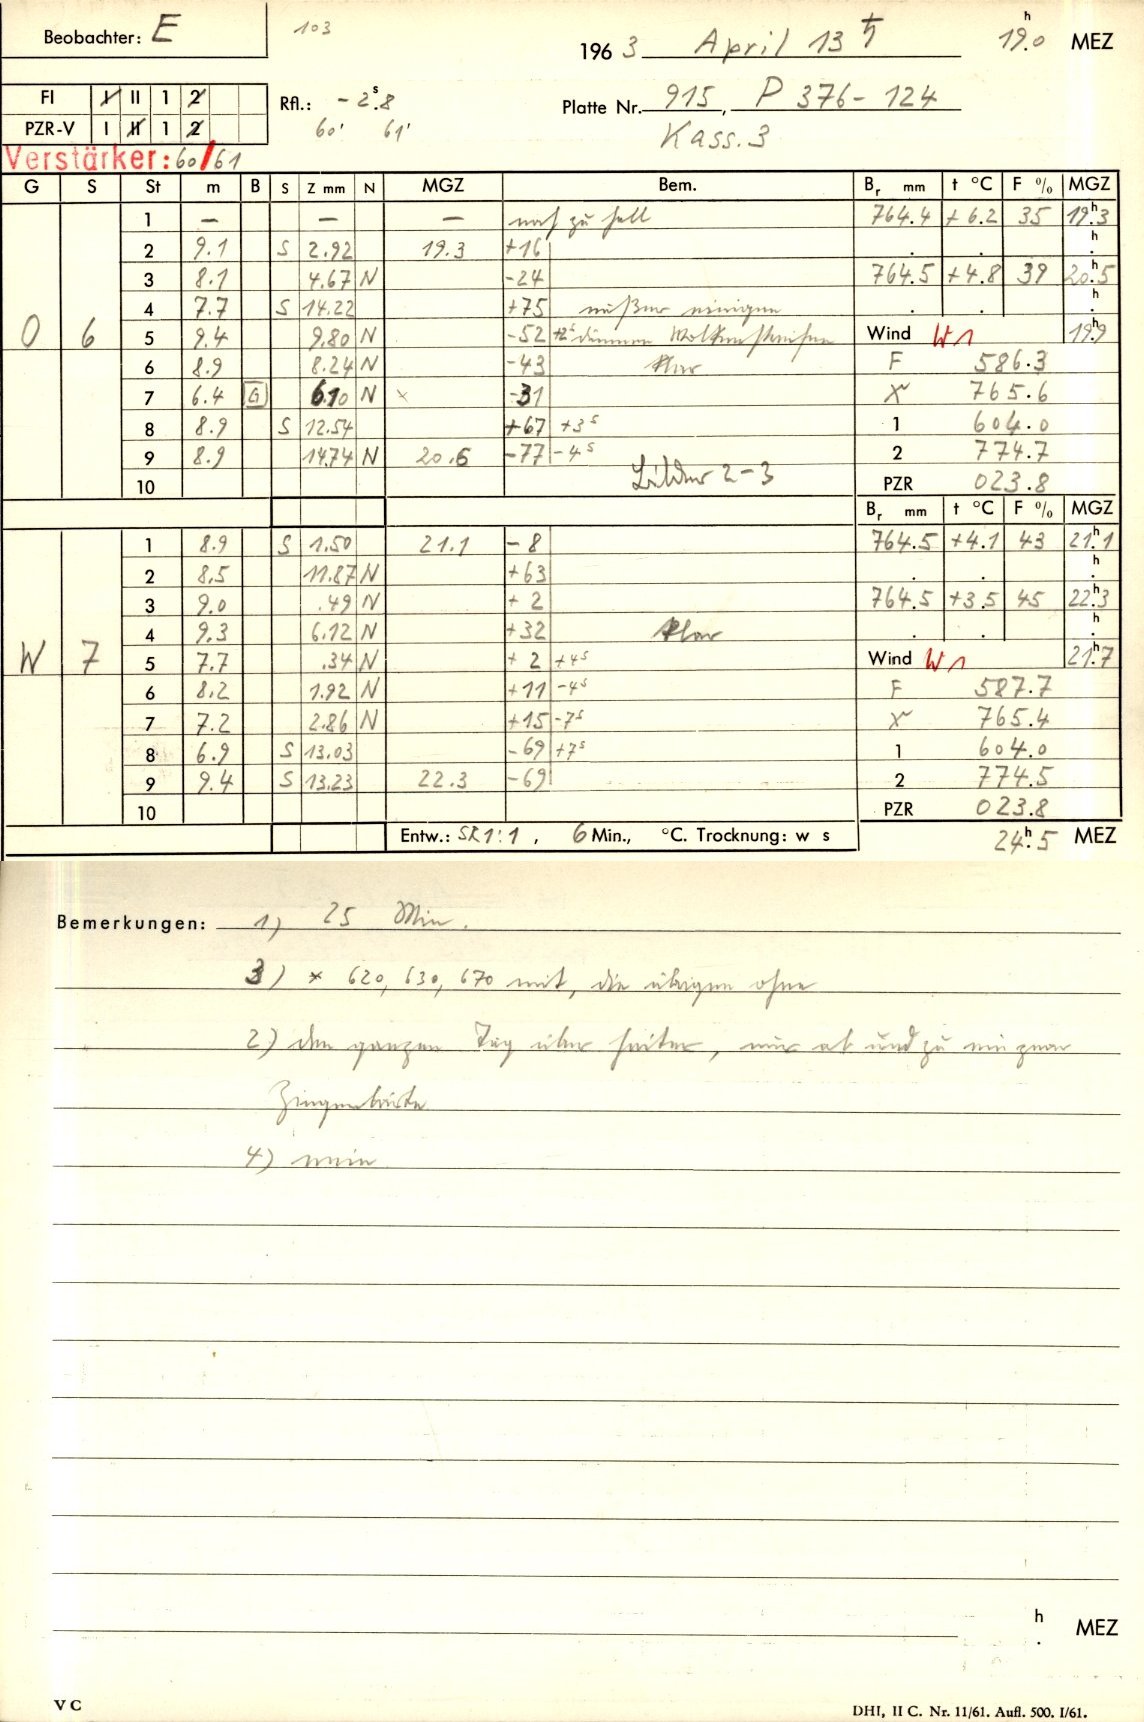 Beobachter: E
103
1963 April 13 ♄ 19h.0 MEZ
FI I II 1 2
PZR-V I II 1 2
Rfl.: - 2s.8
60' 61'
Platte Nr. 915, P 376-124
Kass. 3
Verstärker: 60/61
G S St m B S Z mm N MGZ Bem. Br mm t °C F % MGZ
1 — — — noch zu hell 764.4 +6.2 35 19h.3
2 9.1 S 2.92 19.3 +16 . . h.
3 8.1 4.67 N -24 764.5 +4.8 39 20h.5
4 7.7 S 14.22 +75 außer einigen . . h.
O 6 5 9.4 9.80 N -52 +2s dünnen Wolkenstreifen Wind W 1 19h.9
6 8.9 8.24 N -43 klar F 586.3
7 6.4 G 6.10 N × -31 765.6
8 8.9 S 12.54 +67 +3s 1 604.0
9 8.9 14.74 N 20.6 -77 -4s 2 774.7
Bilder 2-3
10 PZR 023.8
Br mm t °C F % MGZ
1 8.9 S 1.50 21.1 -8 764.5 +4.1 43 21h.1
2 8.5 11.87 N +63 . . h.
3 9.0 .49 N +2 764.5 +3.5 45 22h.3
4 9.3 6.12 N +32 klar . . h.
W 7 5 7.7 .34 N +2 +4s Wind W 1 21h.7
6 8.2 1.92 N +11 -4s F 587.7
7 7.2 2.86 N +15 -7s 765.4
8 6.9 S 13.03 -69 +7s 1 604.0
9 9.4 S 13.23 22.3 -69 2 774.5
10 PZR 023.8
Entw.: SR 1:1, 6 Min., °C. Trocknung: w s 24h.5 MEZ
Bemerkungen: 1) 25 Min.
3) * 620, 630, 670 mit, die übrigen ohne
2) den ganzen Tag über heiter, nur ab und zu ein paar
4) nein
h. MEZ
V C
DHI, II C. Nr. 11/61. Aufl. 500. I/61.